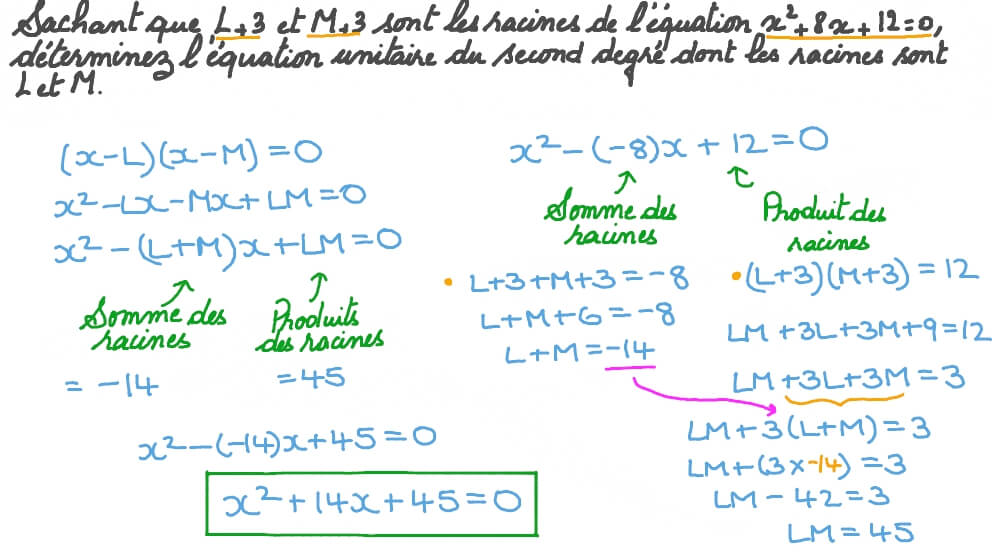 Sachant que L+3 et M+3 sont les racines de l'équation x²+8x+12=0,
déterminez l'équation unitaire du second degré dont les racines sont
L et M.
(x-L)(x-M)=0
x²-Lx-Mx+LM=0
x²-(L+M)x+LM=0
Somme des
racines
= -14
Produits
des racines
=45
x²-(-14)x+45=0
x²+14x+45=0
x²-(-8)x+12=0
Somme des
racines
Produit des
racines
• L+3+M+3=-8
L+M+6=-8
L+M=-14
• (L+3)(M+3)=12
LM+3L+3M+9=12
LM+3L+3M=3
LM+3(L+M)=3
LM+(3×-14)=3
LM-42=3
LM=45